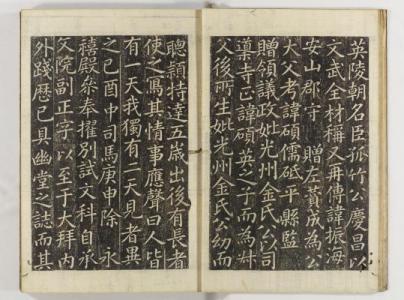 英陵朝名臣孤竹公慶昌以
文武全材稱又再傳諱振海
安山郡守 贈左贊成為公
大父考諱碩儒砥平縣監
贈領議政妣光州金氏公以司
導寺正諱碩英之子而為叔
父後所生妣光州金氏公幼而
聰穎特達五歲出後有長者
使之寫其情事應聲曰人皆
有一天我獨有二天見者異
之己酉中司馬庚申除 永
禧殿參奉擢別試文科自承
文院副正字以至于大拜内
外踐歷已具幽堂之誌而其